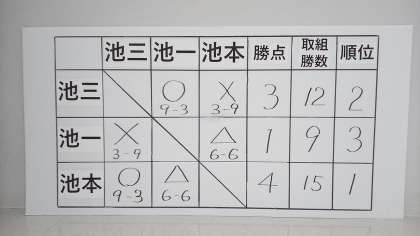 池三 池一 池本 勝点 取組勝数 順位
池三 ○ 9-3 × 3-9 3 12 2
池一 × 3-9 △ 6-6 1 9 3
池本 ○ 9-3 △ 6-6 4 15 1